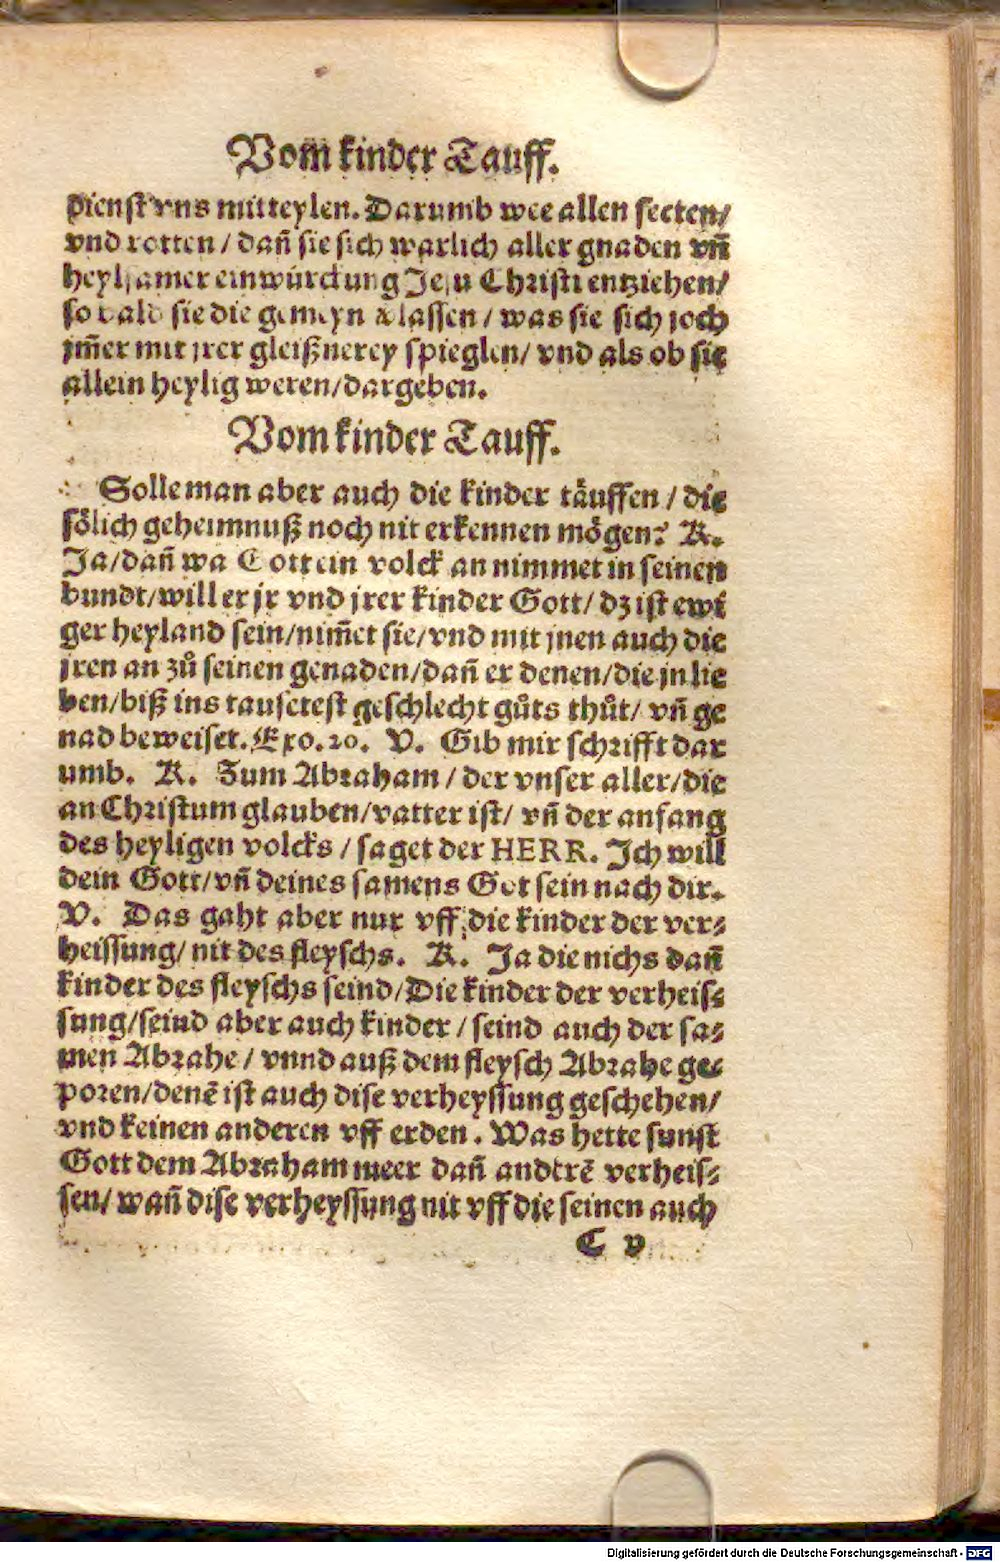 Vom̃ kinder Tauff.
dienst vns mitteylen. Darumb wee allen secten/
vnd rotten / dañ sie sich warlich aller gnaden vñ
heylsamer einwürckung Jesu Christi entziehen/
so bald sie die gemeyn lassen / was sie sich joch
jm̃er mit jrer gleißnerey spieglen/ vnd als ob sie
allein heylig weren/dargeben.
Vom kinder Tauff.
Solle man aber auch die kinder täuffen / die
sölich geheimnuß noch nit erkennen mögen? K.
Ja/dañ wa Gott ein volck an nimmet in seinen
bundt/will er jr vnd jrer kinder Gott/ dz ist ewi
ger heyland sein/nim̃et sie/vnd mit jnen auch die
jren an zů seinen genaden/dañ er denen/die jn lie
ben/biß ins tausetest geschlecht gůts thůt/ vñ ge
nad beweiset. Exo. 20. V. Gib mir schrifft dar
umb. K. Zum Abraham / der vnser aller/die
an Christum glauben/vatter ist/ vñ der anfang
des heyligen volcks / saget der HERR. Jch will
dein Gott/vñ deines samens Got sein nach dir.
V. Das gaht aber nur vff die kinder der ver⸗
heissung/ nit des fleyschs. K. Ja die nichs dañ
kinder des fleyschs seind/Die kinder der verheis⸗
sung/seind aber auch kinder / seind auch der sa⸗
men Abrahe / vnnd auß dem fleysch Abrahe ge⸗
poren/denē ist auch dise verheyssung geschehen/
vnd keinen anderen vff erden. Was hette sunst
Gott dem Abraham meer dañ anderē verheis⸗
sen/ wañ dise verheyssung nit vff die seinen auch
C v
Digitalisierung gefördert durch die Deutsche Forschungsgemeinschaft - DFG